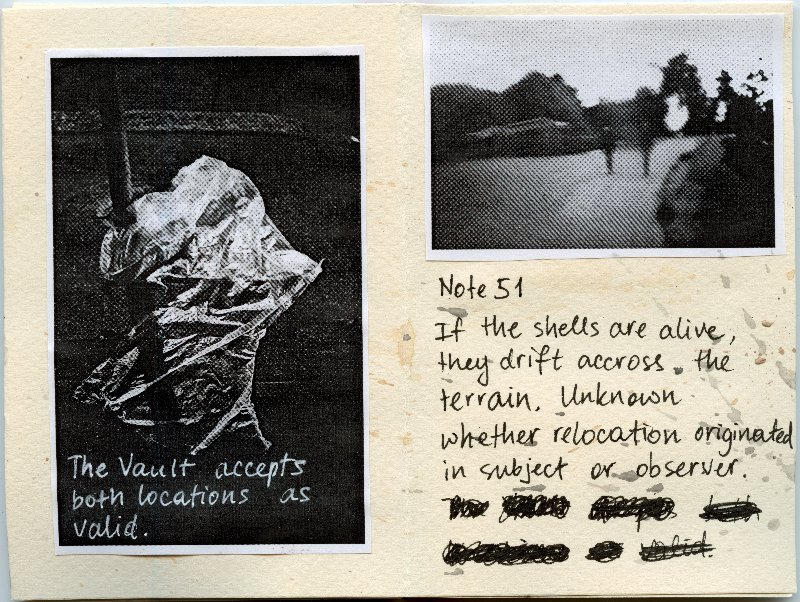 The Vault accepts
both locations as
valid.
Note 51
If the shells are alive,
they drift accross. the
terrain. Unknown
whether relocation originated
in subject or observer.
valid.